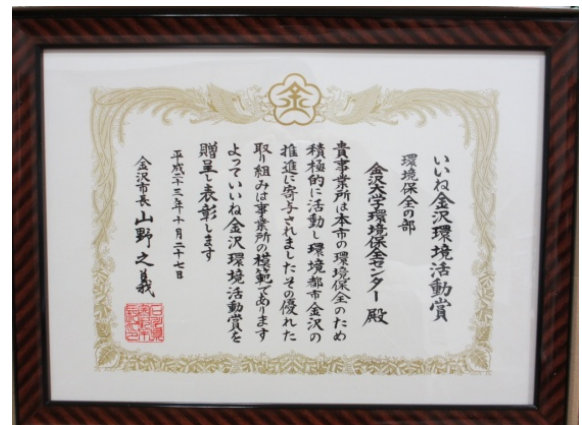 いいね金沢環境活動賞
環境保全の部
金沢大学環境保全センター 殿
貴事業所は本市の環境保全のため
積極的に活動し環境都市金沢の
推進に寄与されましたその優れた
取り組みは事業所の模範であります
よっていいね金沢環境活動賞を
贈呈し表彰します
平成二十三年十月二十七日
金沢市長 山野之義
金